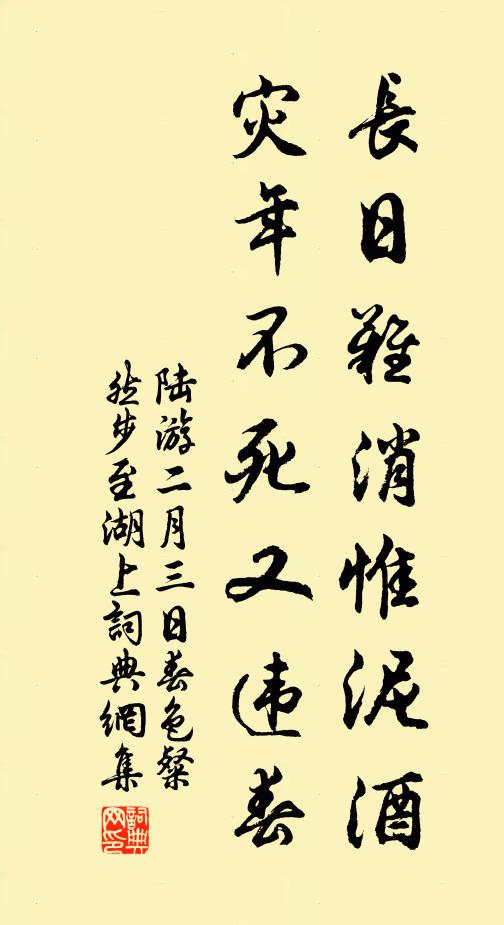 長日難消惟泥酒
灾年不死又违春
陆游二月三日春色粲
然步至湖上詞典網集
詞典
网印